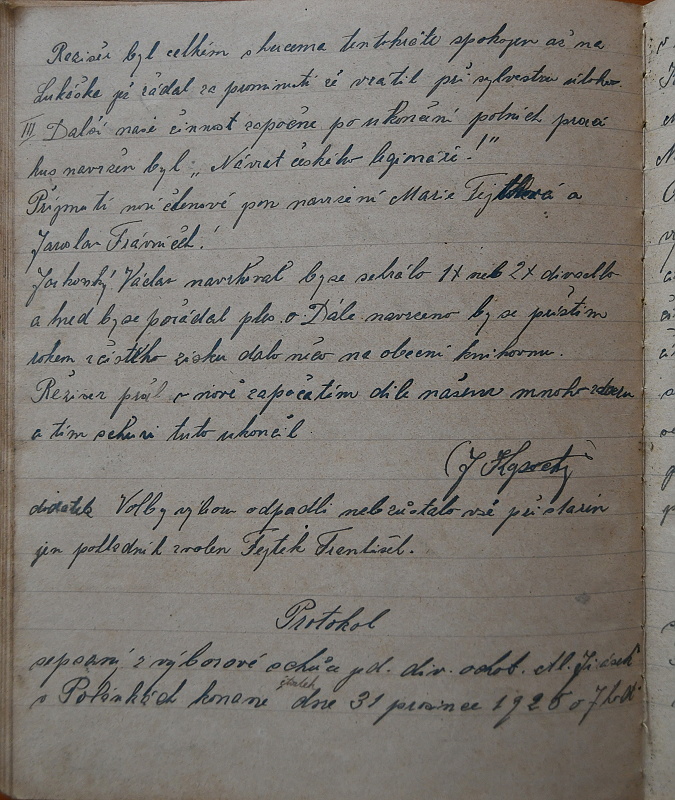 Režisér byl celkem s hercema tentokráte spokojen až na
Lukáška jež žádal za prominutí že vrátil při sylvestru úlohu.
III Další naše činnost započne po ukončení polních prací
kus navržen byl „Návrat českého legionáře!"
Přijmuti noví členové pou navržení Marie Fejtková a
Jaroslav Trávníček!
Václav navrhoval by se sehrálo 1x neb 2x divadlo
a hned by se pořádal ples. o Dále navrženo by se příštím
rokem z čistého zisku dalo něco na obecní knihovnu.
Režiser přál v nově započatím díle našem mnoho zdaru
a tím schůzi tuto ukončil.
dodatek Volby výboru odpadli neb zůstalo vše při starém
jen pokladník zvolen Fejtek František.
Protokol
sepsaný z výborové schůze jed. div. ochot. Al. Jirásek
v Polánkách konané dne 31 prosince 1925 o 7 hod